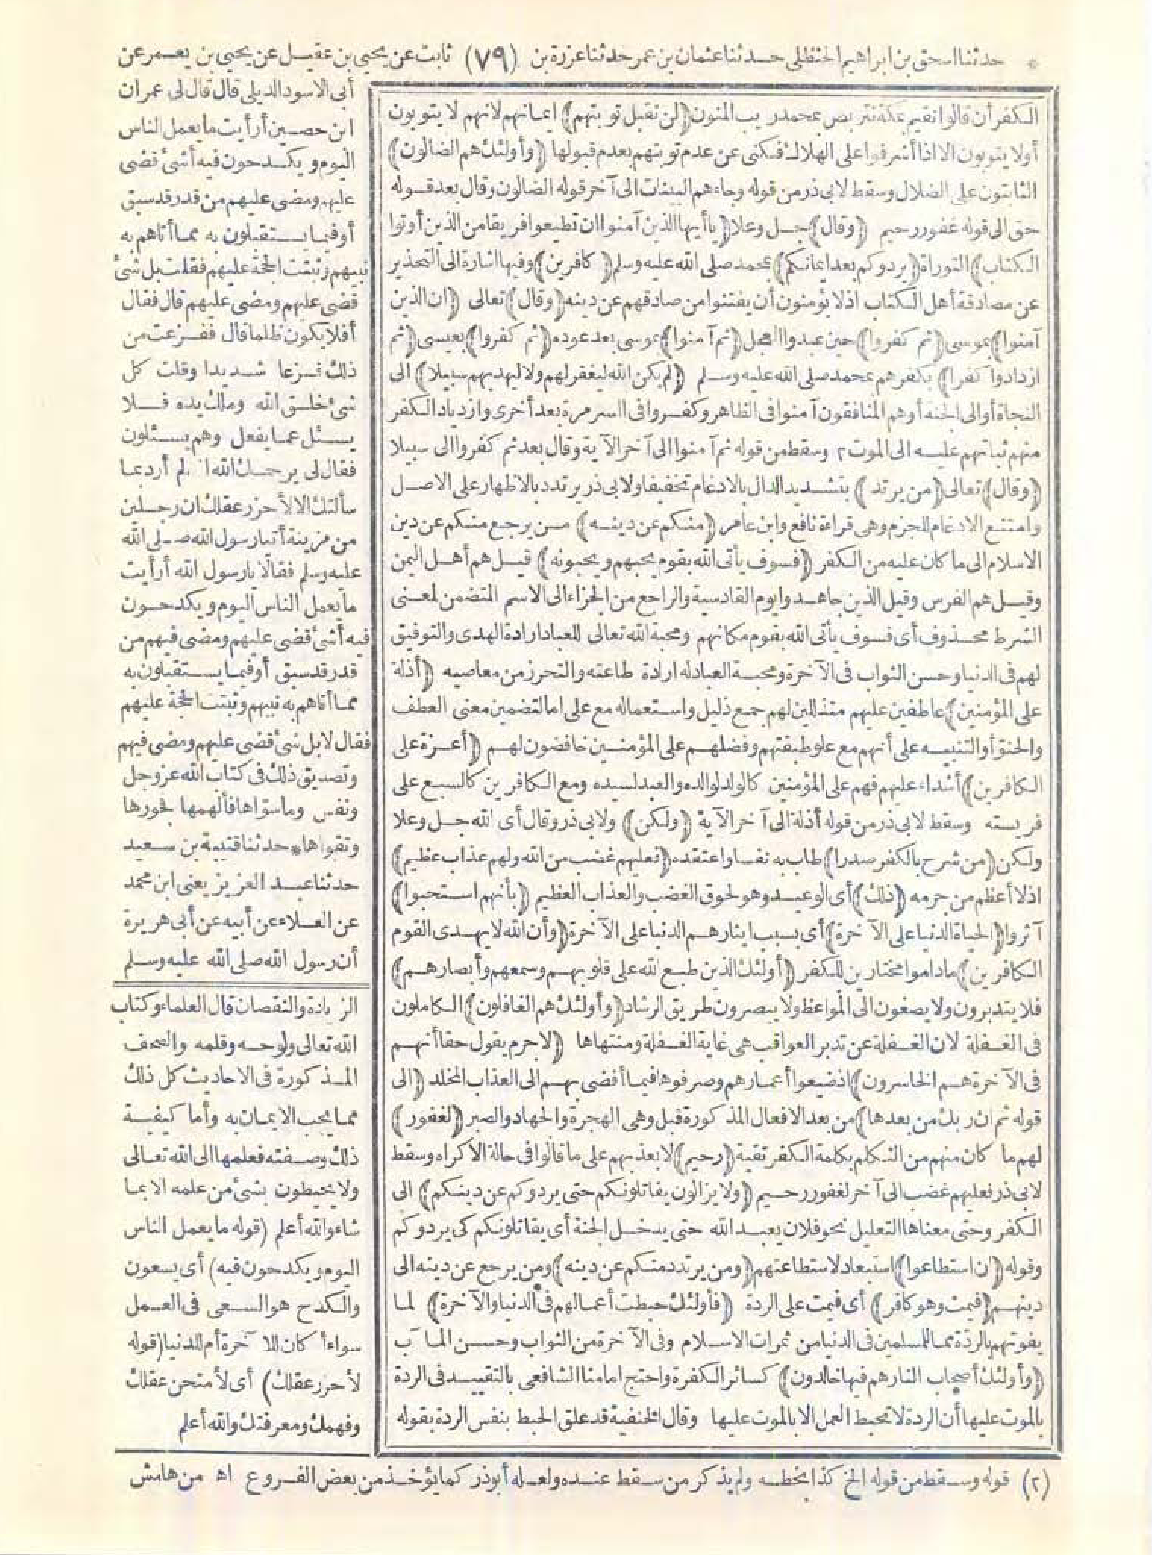 * حدثنا اسحق بن ابراهيم الحنظلى حدثنا عثمان بن عمر حدثنا عزرة بن (٧٩) ثابت عن يحيى بن عقيل عن يحيى بن يعمر عن
أبى الاسود الديلى قال قال لى عمران
ابن حصين أرأيت ما يعمل الناس
اليوم ويكدحون فيه أشئ قضى
عليهم ومضى عليهم من قدر قد سبق
أو فيما يستقبلون به مما أتاهم به
نبيهم وثبتت الحجة عليهم فقلت بل شئ
قضى عليهم ومضى عليهم قال فقال
أفلا يكون ظلما قال ففزعت من
ذلك فزعا شديدا وقلت كل
شئ خلق الله وملك يده فلا
يسئل عما يفعل وهم يسئلون
فقال لى يرحمك الله انى لم أرد بما
سألتك الا لأحزر عقلك ان رجلين
من مزينة أتيا رسول الله صلى الله
عليه وسلم فقالا يا رسول الله أرأيت
ما يعمل الناس اليوم ويكدحون
فيه أشئ قضى عليهم ومضى فيهم من
قدر قد سبق أو فيما يستقبلون به
مما أتاهم به نبيهم وثبتت الحجة عليهم
فقال لا بل شئ قضى عليهم ومضى فيهم
وتصديق ذلك فى كتاب الله عز وجل
ونفس وما سوّاها فألهمها فجورها
وتقواها * حدثنا قتيبة بن سعيد
حدثنا عبد العزيز يعنى ابن محمد
عن العلاء عن أبيه عن أبى هريرة
أن رسول الله صلى الله عليه وسلم
الزيادة والنقصان قال العلماء وكتاب
الله تعالى ولوحه وقلمه والصحف
المذكورة فى الاحاديث كل ذلك
مما يجب الايمان به وأما كيفية
ذلك وصفته فعلمها الى الله تعالى
ولا يحيطون بشئ من علمه الا بما
شاء والله أعلم (قوله ما يعمل الناس
اليوم ويكدحون فيه) أى يسعون
والكدح هو السعى فى العمل
سواء أ كان للآخرة أم للدنيا (قوله
لأحزر عقلك) أى لأمتحن عقلك
وفهمك ومعرفتك والله أعلم
الكفر أن قالوا نقيم بمكة نتربص بمحمد ريب المنون (لن تقبل توبتهم) ايمانهم لانهم لا يتوبون
أو لا يتوبون الا اذا أشرفوا على الهلاك فكنى عن عدم توبتهم بعدم قبولها (وأولئك هم الضالون)
الثابتون على الضلال وسقط لابى ذر من قوله وجاءهم البينات الى آخر قوله الضالون وقال بعد قوله
حق الى قوله غفور رحيم (وقال) جل وعلا (يا أيها الذين آمنوا ان تطيعوا فريقا من الذين أوتوا
الكتاب) التوراة (يردوكم بعد ايمانكم) بمحمد صلى الله عليه وسلم (كافرين) وفيها اشارة الى التحذير
عن مصادقة أهل الكتاب اذ لا يؤمنون أن يفتنوا من صادقهم عن دينه (وقال) تعالى (ان الذين
آمنوا) بموسى (ثم كفروا) حين عبدوا العجل (ثم آمنوا) بموسى بعد عوده (ثم كفروا) بعيسى (ثم
ازدادوا كفرا) بكفرهم بمحمد صلى الله عليه وسلم (لم يكن الله ليغفر لهم ولا ليهديهم سبيلا) الى
النجاة أو الى الجنة أو هم المنافقون آمنوا فى الظاهر وكفروا فى السر مرة بعد أخرى وازدياد الكفر
منهم ثباتهم عليه الى الموت ٢ وسقط من قوله ثم آمنوا الى آخر الآية وقال بعد ثم كفروا الى سبيلا
(وقال) تعالى (من يرتد) بتشديد الدال بالادغام تخفيفا ولابى ذر يرتدد بالاظهار على الاصل
وامتنع الادغام للجزم وهى قراءة نافع وابن عامر (منكم عن دينه) من يرجع منكم عن دين
الاسلام الى ما كان عليه من الكفر (فسوف يأتى الله بقوم يحبهم ويحبونه) قيل هم أهل اليمن
وقيل هم الفرس وقيل الذين جاهدوا يوم القادسية والراجع من الجزاء الى الاسم المتضمن لمعنى
الشرط محذوف أى فسوف يأتى الله بقوم مكانهم ومحبة الله تعالى للعباد ارادة الهدى والتوفيق
لهم فى الدنيا وحسن الثواب فى الآخرة ومحبة العباد له ارادة طاعته والتحرز من معاصيه (أذلة
على المؤمنين) عاطفين عليهم متذللين لهم جمع ذليل واستعماله مع على اما لتضمين معنى العطف
والحنو أو التنبيه على أنهم مع علو طبقتهم وفضلهم على المؤمنين خافضون لهم (أعزة على
الكافرين) أشداء عليهم فهم على المؤمنين كالولد لوالده والعبد لسيده ومع الكافرين كالسبع على
فريسته وسقط لابى ذر من قوله أذلة الى آخر الآية (ولكن) ولابى ذر وقال أى الله جل وعلا
ولكن (من شرح بالكفر صدرا) طاب به نفسا واعتقده (فعليهم غضب من الله ولهم عذاب عظيم)
اذ لا أعظم من جرمه (ذلك) أى الوعيد وهو لحوق الغضب والعذاب العظيم (بأنهم استحبوا)
آثروا (الحياة الدنيا على الآخرة) أى بسبب ايثارهم الدنيا على الآخرة (وأن الله لا يهدى القوم
الكافرين) ما داموا مختارين للكفر (أولئك الذين طبع الله على قلوبهم وسمعهم وأبصارهم)
فلا يتدبرون ولا يصغون الى المواعظ ولا يبصرون طريق الرشاد (وأولئك هم الغافلون) الكاملون
فى الغفلة لان الغفلة عن تدبر العواقب هى غاية الغفلة ومنتهاها (لا جرم يقول حقا أنهم
فى الآخرة هم الخاسرون) اذ ضيعوا أعمارهم وصرفوها فيما أفضى بهم الى العذاب المخلد (الى
قوله ثم ان ربك من بعدها) من بعد الافعال المذكورة قبل وهى الهجرة والجهاد والصبر (لغفور)
لهم ما كان منهم من التكلم بكلمة الكفر تقية (رحيم) لا يعذبهم على ما قالوا فى حالة الاكراه وسقط
لابى ذر فعليهم غضب الى آخر لغفور رحيم (ولا يزالون يقاتلونكم حتى يردوكم عن دينكم) الى
الكفر وحتى معناها التعليل نحو فلان يعبد الله حتى يدخل الجنة أى يقاتلونكم كى يردوكم
وقوله (ان استطاعوا) استبعاد لاستطاعتهم (ومن يرتدد منكم عن دينه) ومن يرجع عن دينه الى
دينهم (فيمت وهو كافر) أى فيمت على الردة (فأولئك حبطت أعمالهم فى الدنيا والآخرة) لما
يفوتهم بالردة مما للمسلمين فى الدنيا من ثمرات الاسلام وفى الآخرة من الثواب وحسن المآب
(وأولئك أصحاب النار هم فيها خالدون) كسائر الكفرة واحتج امامنا الشافعى بالتقييد فى الردة
بالموت عليها أن الردة لا تحبط العمل الا بالموت عليها وقال الحنفية قد علق الحبط بنفس الردة بقوله
(٢) قوله وسقط من قوله الخ كذا بخطه ولم يذكر من سقط عنده ولعله أبو ذر كما يؤخذ من بعض الفروع اه من هامش